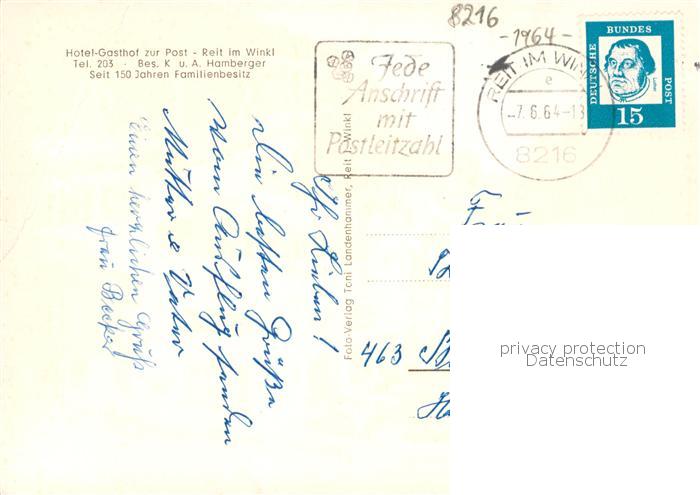 8216
-1964-
Hotel-Gasthof zur Post - Reit im Winkl
Tel. 203 · Bes. K u. A. Hamberger
Seit 150 Jahren Familienbesitz
Jede
Anschrift
mit
Postleitzahl
REIT IM WINKL
e
-7.6.64-13
8216
DEUTSCHE BUNDESPOST
Luther
15
Ihr Lieben!
Die besten Grüße
vom Ausflug senden
Mutter u Vater
Einen herzlichen Gruß
Frau Becker
Foto-Verlag Toni Landenhammer, Reit i. Winkl
Frau
463
privacy protection
Datenschutz